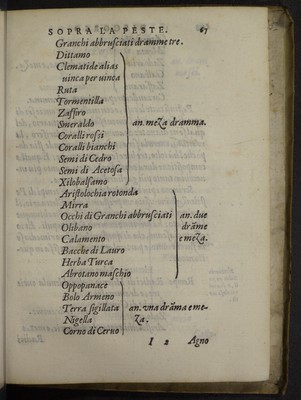 SOPRA LA PESTE. 67
Granchi abbrusciati dramme tre.
Dittamo
Clematide alias
uinca per uinca
Ruta
Tormentilla
Zaffiro
Smeraldo an. meza dramma.
Coralli rossi
Coralli bianchi
Semi di Cedro
Semi di Acetosa
Xilobalsamo
Aristolochia rotonda
Mirra
Occhi di Granchi abbrusciati an. due
Olibano drãme
Calamento e meza.
Bacche di Lauro
Herba Turca
Abrotano maschio
Oppopanace
Bolo Armeno
Terra sigillata an. vna drãma e me-
Nigella za.
Corno di Ceruo
I 2 Agno